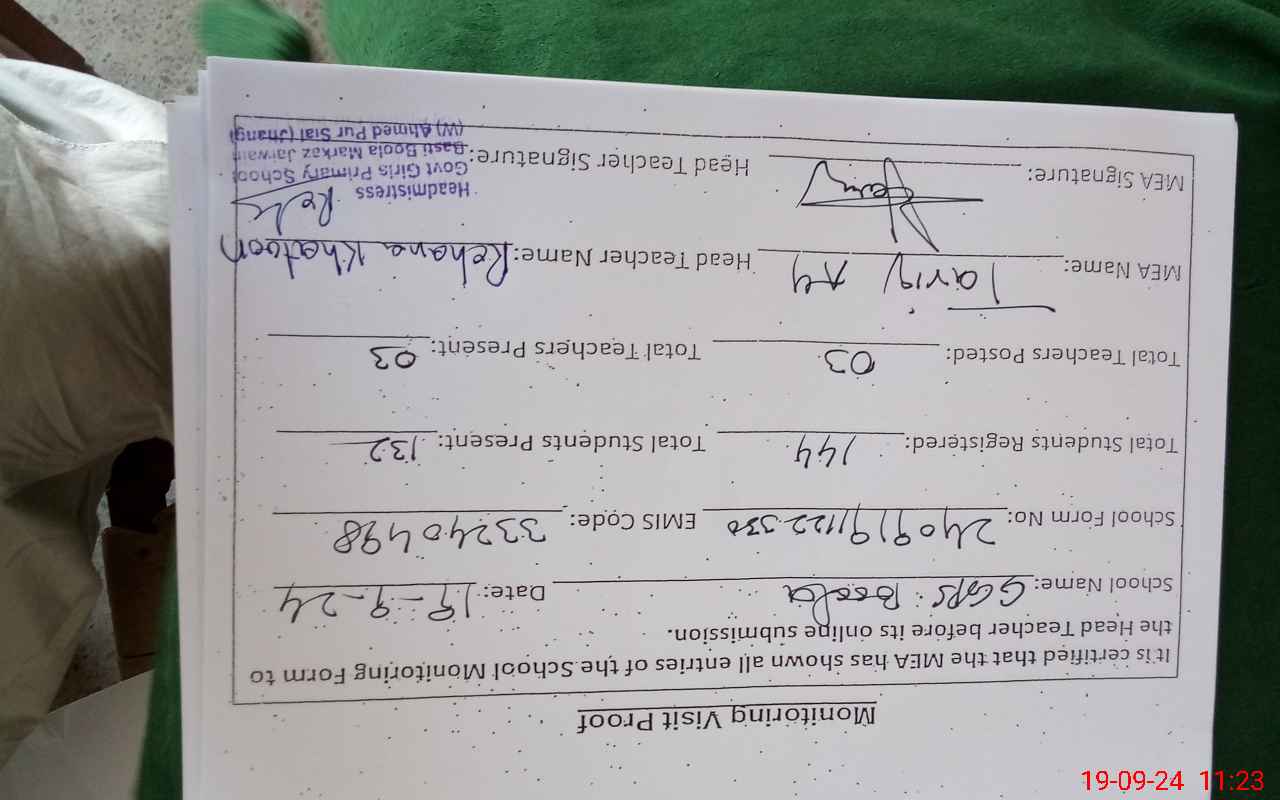 Monitoring Visit Proof
It is certified that the MEA has shown all entries of the School Monitoring Form to
the Head Teacher before its online submission.
School Name: GGPS Boola Date: 19-9-24
School Form No: 2409191122330 EMIS Code: 33240498
Total Students Registered: 144 Total Students Present: 132
Total Teachers Posted: 03 Total Teachers Present: 03
MEA Name: Tariq Head Teacher Name: Rehana Khatoon
MEA Signature: Head Teacher Signature:
Headmistress
Govt Girls Primary School
Basti Boola Markaz Jaiwain
(W) Ahmed Pur Sial (Jhang)
19-09-24 11:23